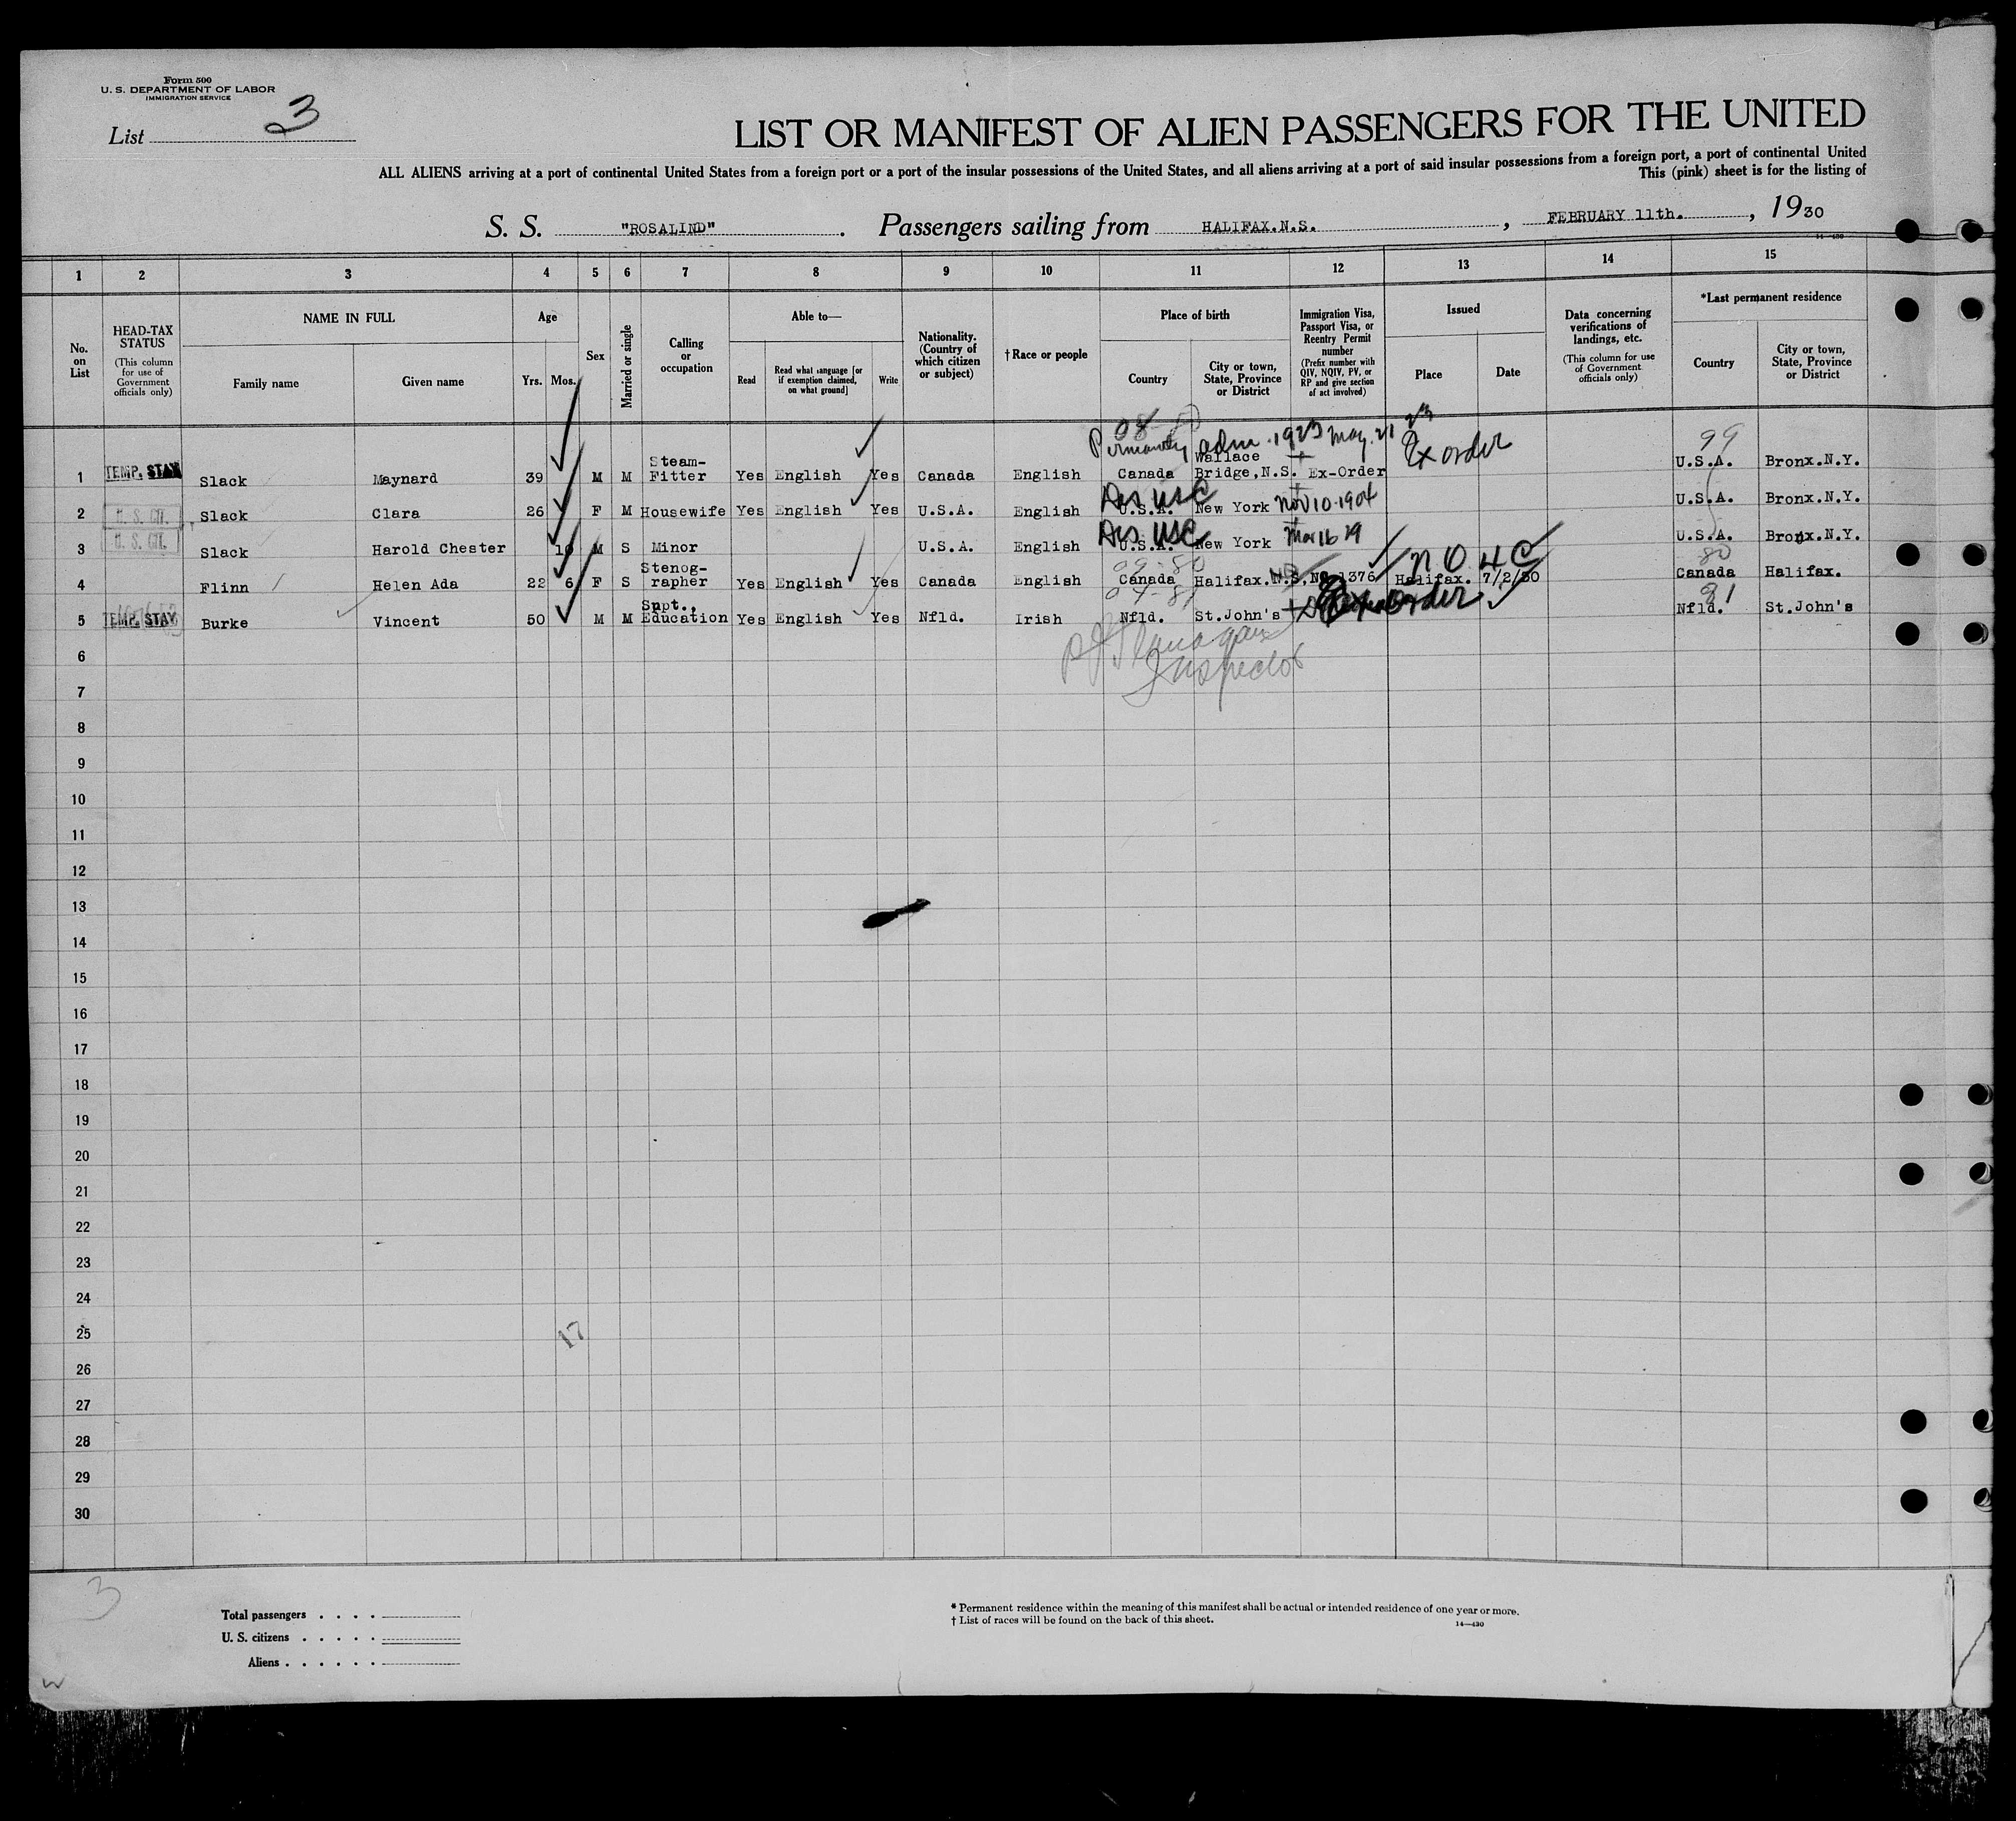 Form 500
U. S. DEPARTMENT OF LABOR
IMMIGRATION SERVICE
List 3
LIST OR MANIFEST OF ALIEN PASSENGERS FOR THE UNITED
ALL ALIENS arriving at a port of continental United States from a foreign port or a port of the insular possessions of the United States, and all aliens arriving at a port of said insular possessions from a foreign port, a port of continental United
This (pink) sheet is for the listing of
S. S. "ROSALIND" . Passengers sailing from HALIFAX.N.S. , FEBRUARY 11th. , 1930
14—430
1 2 3 4 5 6 7 8 9 10 11 12 13 14 15
No. on List
HEAD-TAX STATUS
(This column for use of Government officials only)
NAME IN FULL
Family name Given name
Age
Yrs. Mos.
Sex
Married or single
Calling or occupation
Able to—
Read
Read what language [or if exemption claimed, on what ground]
Write
Nationality. (Country of which citizen or subject)
† Race or people
Place of birth
Country
City or town, State, Province or District
Immigration Visa, Passport Visa, or Reentry Permit number
(Prefix number with QIV, NQIV, PV, or RP and give section of act involved)
Issued
Place Date
Data concerning verifications of landings, etc.
(This column for use of Government officials only)
*Last permanent residence
Country
City or town, State, Province or District
Permanently adm. 1923 May. 21 Ex order 99
1 TEMP. STAY Slack Maynard 39 M M Steam-Fitter Yes English Yes Canada English Canada Wallace Bridge,N.S. Ex-Order U.S.A. Bronx.N.Y.
2 U. S. CIT. Slack Clara 26 F M Housewife Yes English Yes U.S.A. English U.S.A. USC New York Nov 10-1904 U.S.A. Bronx.N.Y.
3 U. S. CIT. Slack Harold Chester 10 M S Minor U.S.A. English U.S.A. USC New York Mar 16 19 U.S.A. Bronx.N.Y.
09-80 NO 4C 80
4 Flinn Helen Ada 22 6 F S Stenog-rapher Yes English Yes Canada English Canada Halifax.N.S, No 1376 Halifax. 7/2/30 Canada Halifax.
04-81 81
5 TEMP. STAY Burke Vincent 50 M M Supt., Education Yes English Yes Nfld. Irish Nfld. St.John's Ex order Nfld. St.John's
Inspector
6
7
8
9
10
11
12
13
14
15
16
17
18
19
20
21
22
23
24
25 17
26
27
28
29
30
3
Total passengers . . . .
U. S. citizens . . . . .
Aliens . . . . . .
* Permanent residence within the meaning of this manifest shall be actual or intended residence of one year or more.
† List of races will be found on the back of this sheet.
14—430